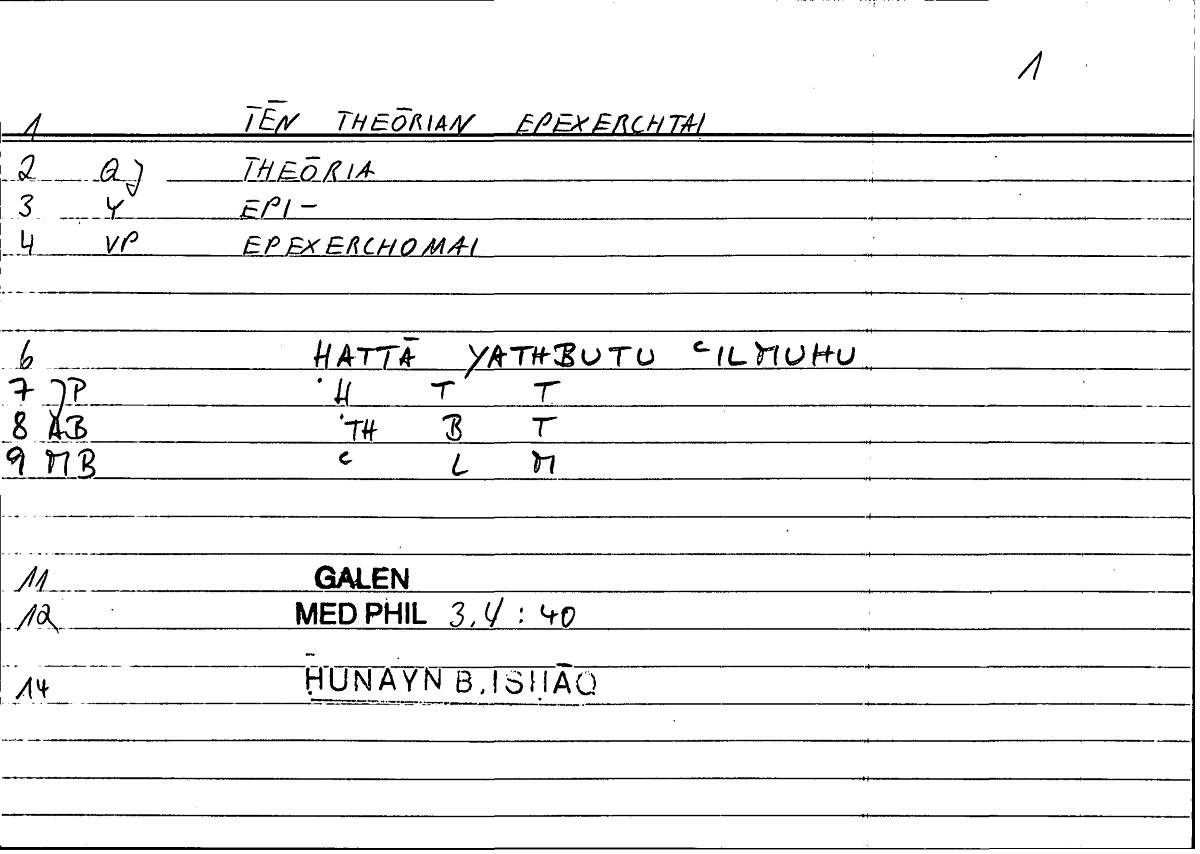 1
1 TĒN THEŌRIAN EPEXERCHTAI
2 QJ THEŌRIA
3 Y EPI-
4 VP EPEXERCHOMAI
6 HATTĀ YATHBUTU ᶜILMUHU
7 JP Ḥ T T
8 AB TH B T
9 MB ᶜ L M
11 GALEN
12 MED PHIL 3,4 : 40
14 ḤUNAYN B. ISḤĀQ